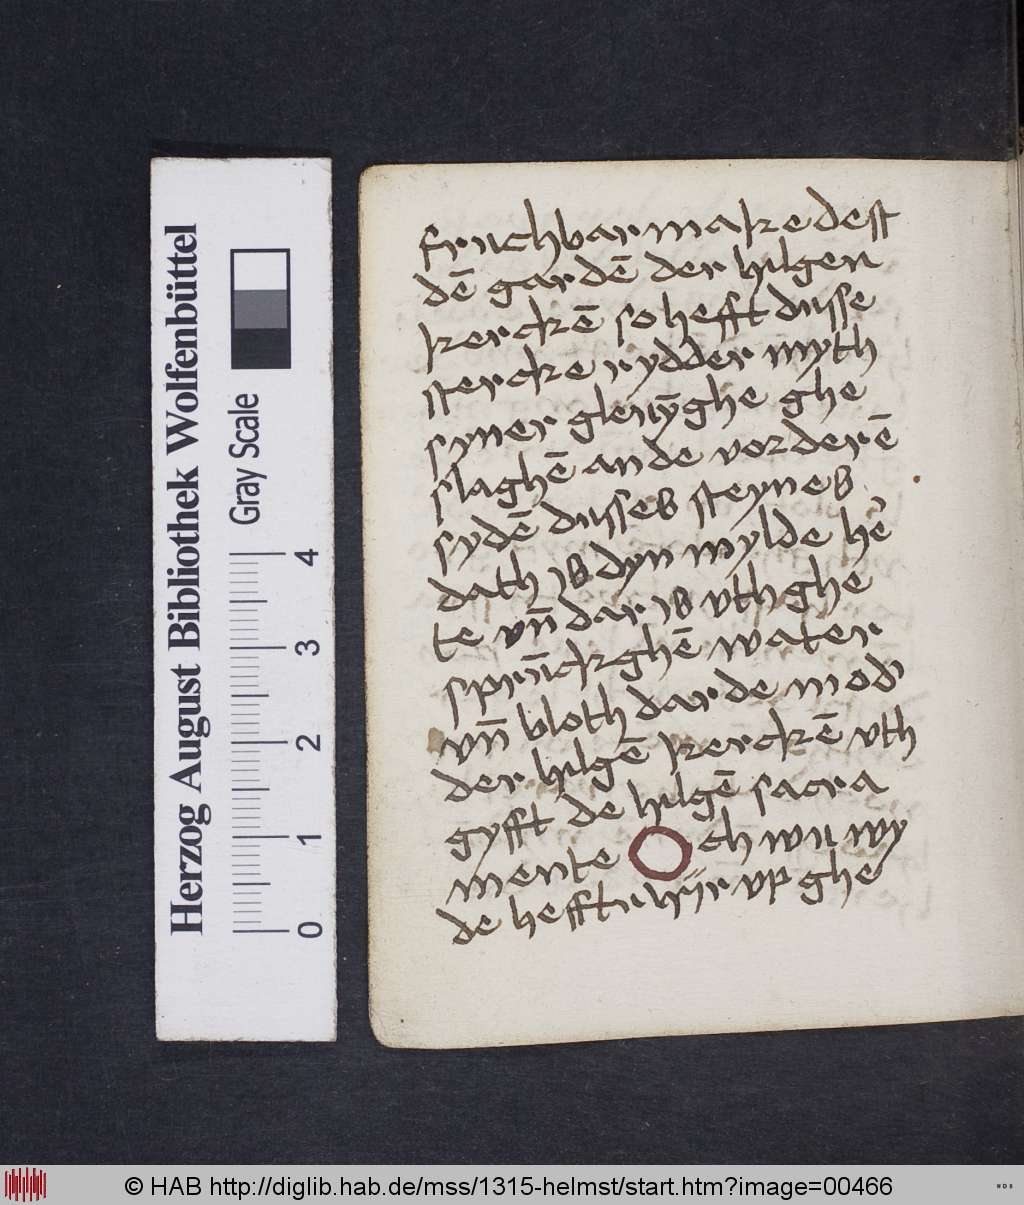 fruchbar makedest
dē gardē der hilgen
kerckē so hefft dusse
stercke rydder myth
syner glenȳghe ghe
slaghē an de vorderē
sydē dusses steynes
dath is dyn mylde he
te vn̄ dar is vth ghe
sprūckghē water
vn̄ bloth dar de mod'
der hilgē kerckē vth
gyfft de hilgē sacra
mente Och wu wy
de hefftu hÿr vp ghe
Herzog August Bibliothek Wolfenbüttel
Gray Scale
0 1 2 3 4
© HAB http://diglib.hab.de/mss/1315-helmst/start.htm?image=00466